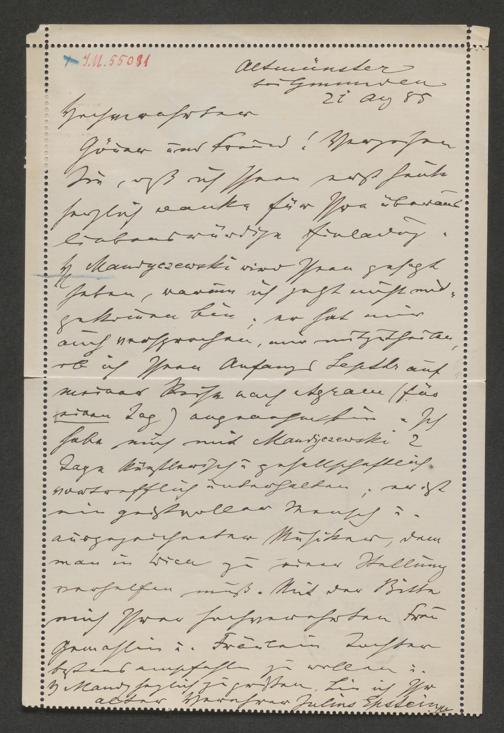 I.N. 55031
Altmünster
bei Gmunden
21 Aug 85
Hochverehrter
Gönner und Freund! Verzeihen
Sie, daß ich Ihnen erst heute
herzlich danke für Ihre überaus
liebenswürdige Einladung.
H Mandyczewski wird Ihnen gesagt
haben, warum ich jetzt nicht mit-
gekommen bin; er hat mir
auch versprochen, mir mitzutheilen,
ob ich Ihnen Anfangs Septbr auf
meiner Reise nach Agram (für
einen Tag) angenehm bin. Ich
habe mich mit Mandyczewski 2
Tage künstlerisch u gesellschaftlich
vortrefflich unterhalten; er ist
ein geistvoller Mensch u.
ausgezeichneter Musiker, dem
man in Wien zu einer Stellung
verhelfen muß. Mit der Bitte
mich Ihrer hochverehrten Frau
Gemahlin u. Fräulein Tochter
bestens empfehlen zu wollen u.
H Mandy herzlich zu grüßen, bin ich Ihr
alter Verehrer Julius Epstein